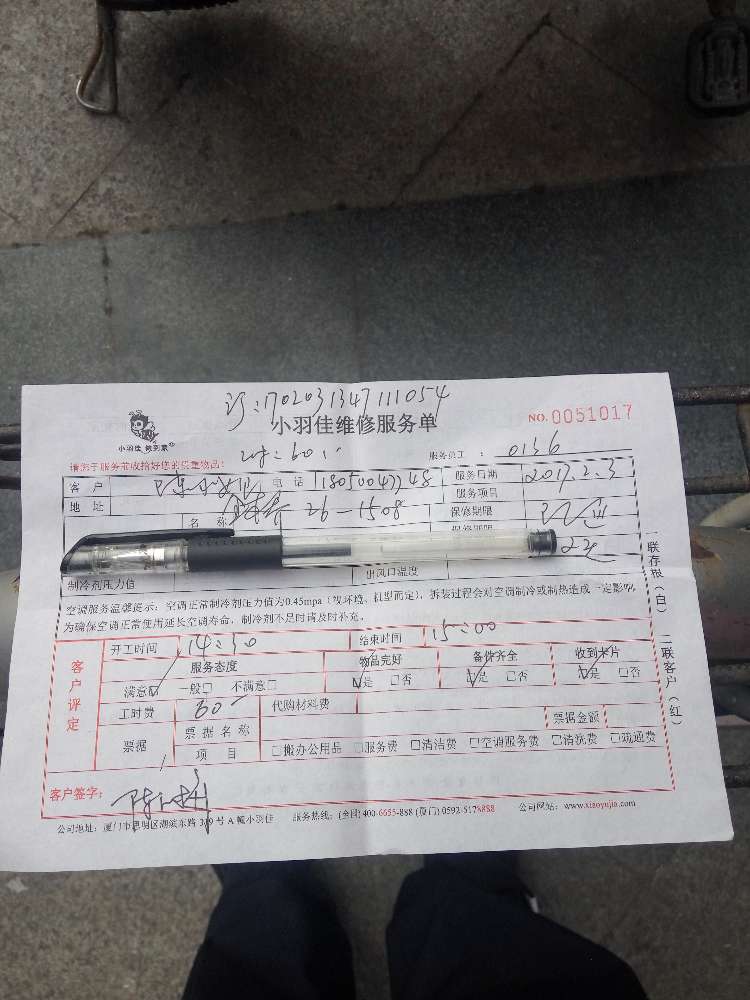 订:1702031347111054
小羽佳 做到家
小羽佳维修服务单
NO.0051017
请您于服务前收拾好您的贵重物品!
服务员工: 0136
客户 电话 18050047748 服务日期 2017.2.3
地址 26-1508 服务项目
名称 保修期限
制冷剂压力值 出风口温度
空调服务温馨提示:空调正常制冷剂压力值为0.45mpa(视环境、机型而定),拆装过程会对空调制冷或制热造成一定影响,
为确保空调正常使用延长空调寿命,制冷剂不足时请及时补充。
客户评定
开工时间 14:30 结束时间 15:00
服务态度 物品完好 备件齐全 收到卡片
满意☑ 一般□ 不满意□ ☑是 □否 ☑是 □否 ☑是 □否
工时费 60 代购材料费
票据 票据名称 票据金额
项目 □搬办公用品 □服务费 □清洁费 □空调服务费 □清洗费 □疏通费
客户签字:
公司地址:厦门市思明区湖滨东路319号A幢小羽佳 服务热线:(全国)400-6655-888 (厦门)0592-5178888 公司网站:www.xiaoyujia.com
一联存根(白) 二联客户(红)